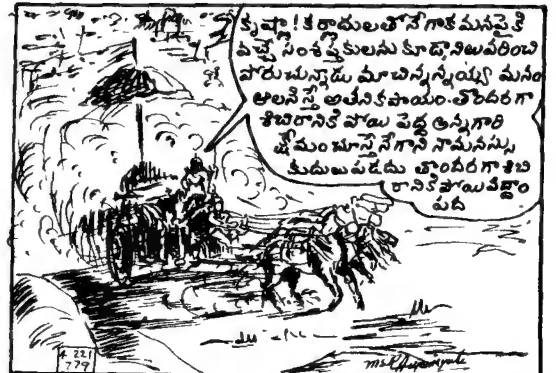 కృష్ణా! కర్ణాదులతోనేగాక మనపైకి
వచ్చే సంశప్తకులను కూడా నిలువరించి
పోరుచున్నాడు మా చిన్నన్నయ్య మనం
ఆలసిస్తే అతనికపాయం. తొందరగా
శిబిరానికి పోయి పెద్ద అన్నగారి
క్షేమం చూస్తేనేగాని నామనస్సు
కుదుటపడదు తొందరగా శిబి
రానికి పోయివద్దాం
పద
4 221
779